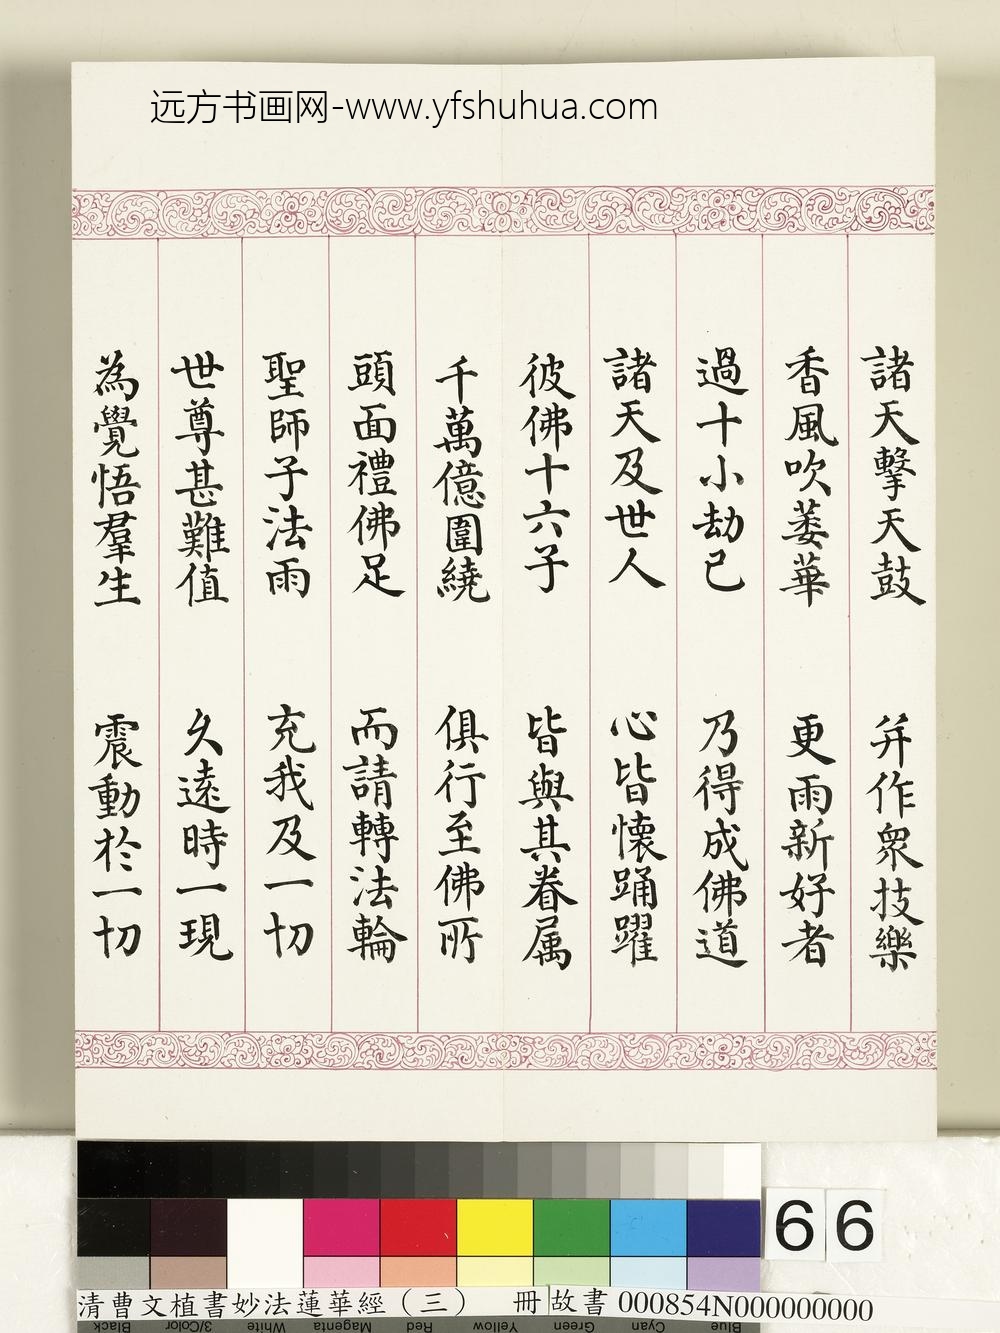 远方书画网-www.yfshuhua.com
諸天擊天鼓 并作衆技樂
香風吹萎華 更雨新好者
過十小劫已 乃得成佛道
諸天及世人 心皆懷踊躍
彼佛十六子 皆與其眷属
千萬億圍繞 俱行至佛所
頭面禮佛足 而請轉法輪
聖師子法雨 充我及一切
世尊甚難值 久遠時一現
為覺悟羣生 震動於一切
66
清曹文植書妙法蓮華經（三） 冊 故書 000854N000000000
Black 3/Color White Magenta Red Yellow Green Cyan Blue